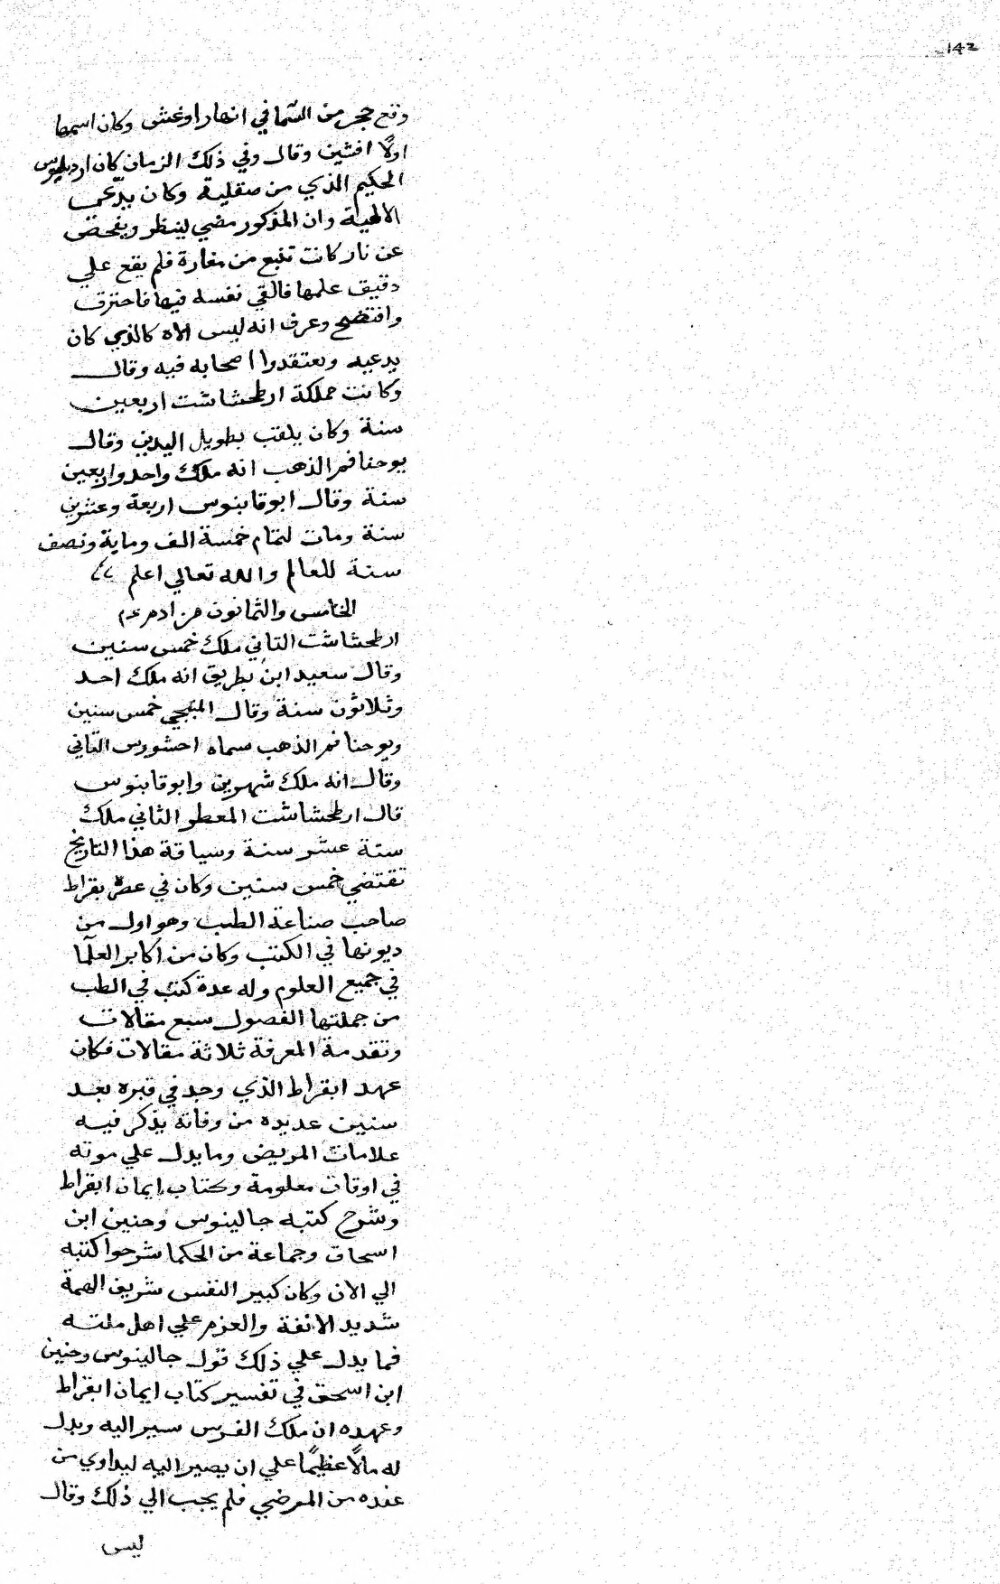 142
وقع حجر من السما في انهار اوغش وكان اسمها
اولاً افثين وقال وفي ذلك الزمان كان
الحكيم الذي من صقلية وكان يدّعي
الالهية وان المذكور مضي لينظر ويفحص
عن نار كانت تنبع من مغارة فلم يقع علي
دقيق علمها فالقي نفسه فيها فاحترق
وافتضح وعرف انه ليس الاه كالذي كان
يدعيه وبعتقدوا اصحابه فيه وقال
وكانت مملكة ارطحشاشت اربعين
سنة وكان يلقب بطويل اليدين وقال
يوحنا فم الذهب انه ملك واحد واربعين
سنة وقال ابوقابنوس اربعة وعشرين
سنة ومات لتمام خمسة الف وماية ونصف
سنة للعالم والله تعالي اعلم
الخامس والثمانون من ادم
ارطحشاشت الثاني ملك خمس سنين
وقال سعيد ابن بطريق انه ملك احد
وثلاثون سنة وقال المنبجي خمس سنين
ويوحنا فم الذهب سماه احشورس الثاني
وقال انه ملك شهرين وابوقابنوس
قال ارطحشاشت المعطو الثاني ملك
ستة عشر سنة وسياقة هذا التاريخ
تقتضي خمس سنين وكان في عصره بقراط
صاحب صناعة الطب وهو اول من
ديونها في الكتب وكان من اكابر العلما
في جميع العلوم وله عدة كتب في الطب
من جملتها الفصول سبع مقالات
وتقدمة المعرفة ثلاثة مقالات فكان
عهد ابقراط الذي وجد في قبره بعد
سنين عديده من وفاته يذكر فيه
علامات المريض وما يدل علي موته
في اوقات معلومة وكتاب ايمان ابقراط
وشرح كتبه جالينوس وحنين ابن
اسحاق وجماعة من الحكما شرحوا كتبه
الي الان وكان كبير النفس شريف الهمة
شديد الانفة والعزم علي اهل ملته
فما يدل علي ذلك قول جالينوس وحنين
ابن اسحق في تفسير كتاب ايمان ابقراط
وعهده ان ملك الفرس سير اليه وبدل
له مالاً عظيماً علي ان يصير اليه ليداوي من
عنده من المرضي فلم يجب الي ذلك وقال
ليس